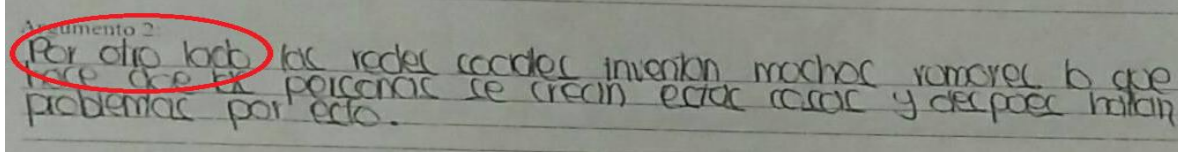 Argumento 2:
Por otro lado las redes sociales inventan muchos rumores lo que
hace que las personas se crean estas cosas y despues hallan
problemas por esto.